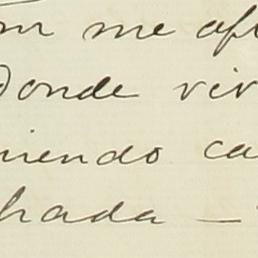 me
donde viv
iendo ca
hada —